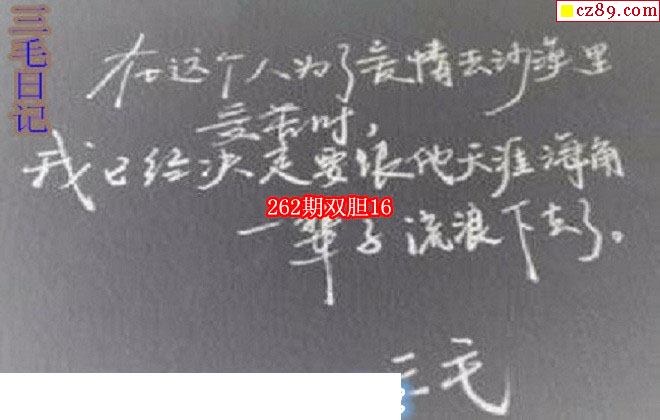 cz89.com
三毛日记
在这个人为了爱情去沙漠里
受苦时，
我已经决定要跟他天涯海角
262期双胆16
一辈子流浪下去了。
三毛